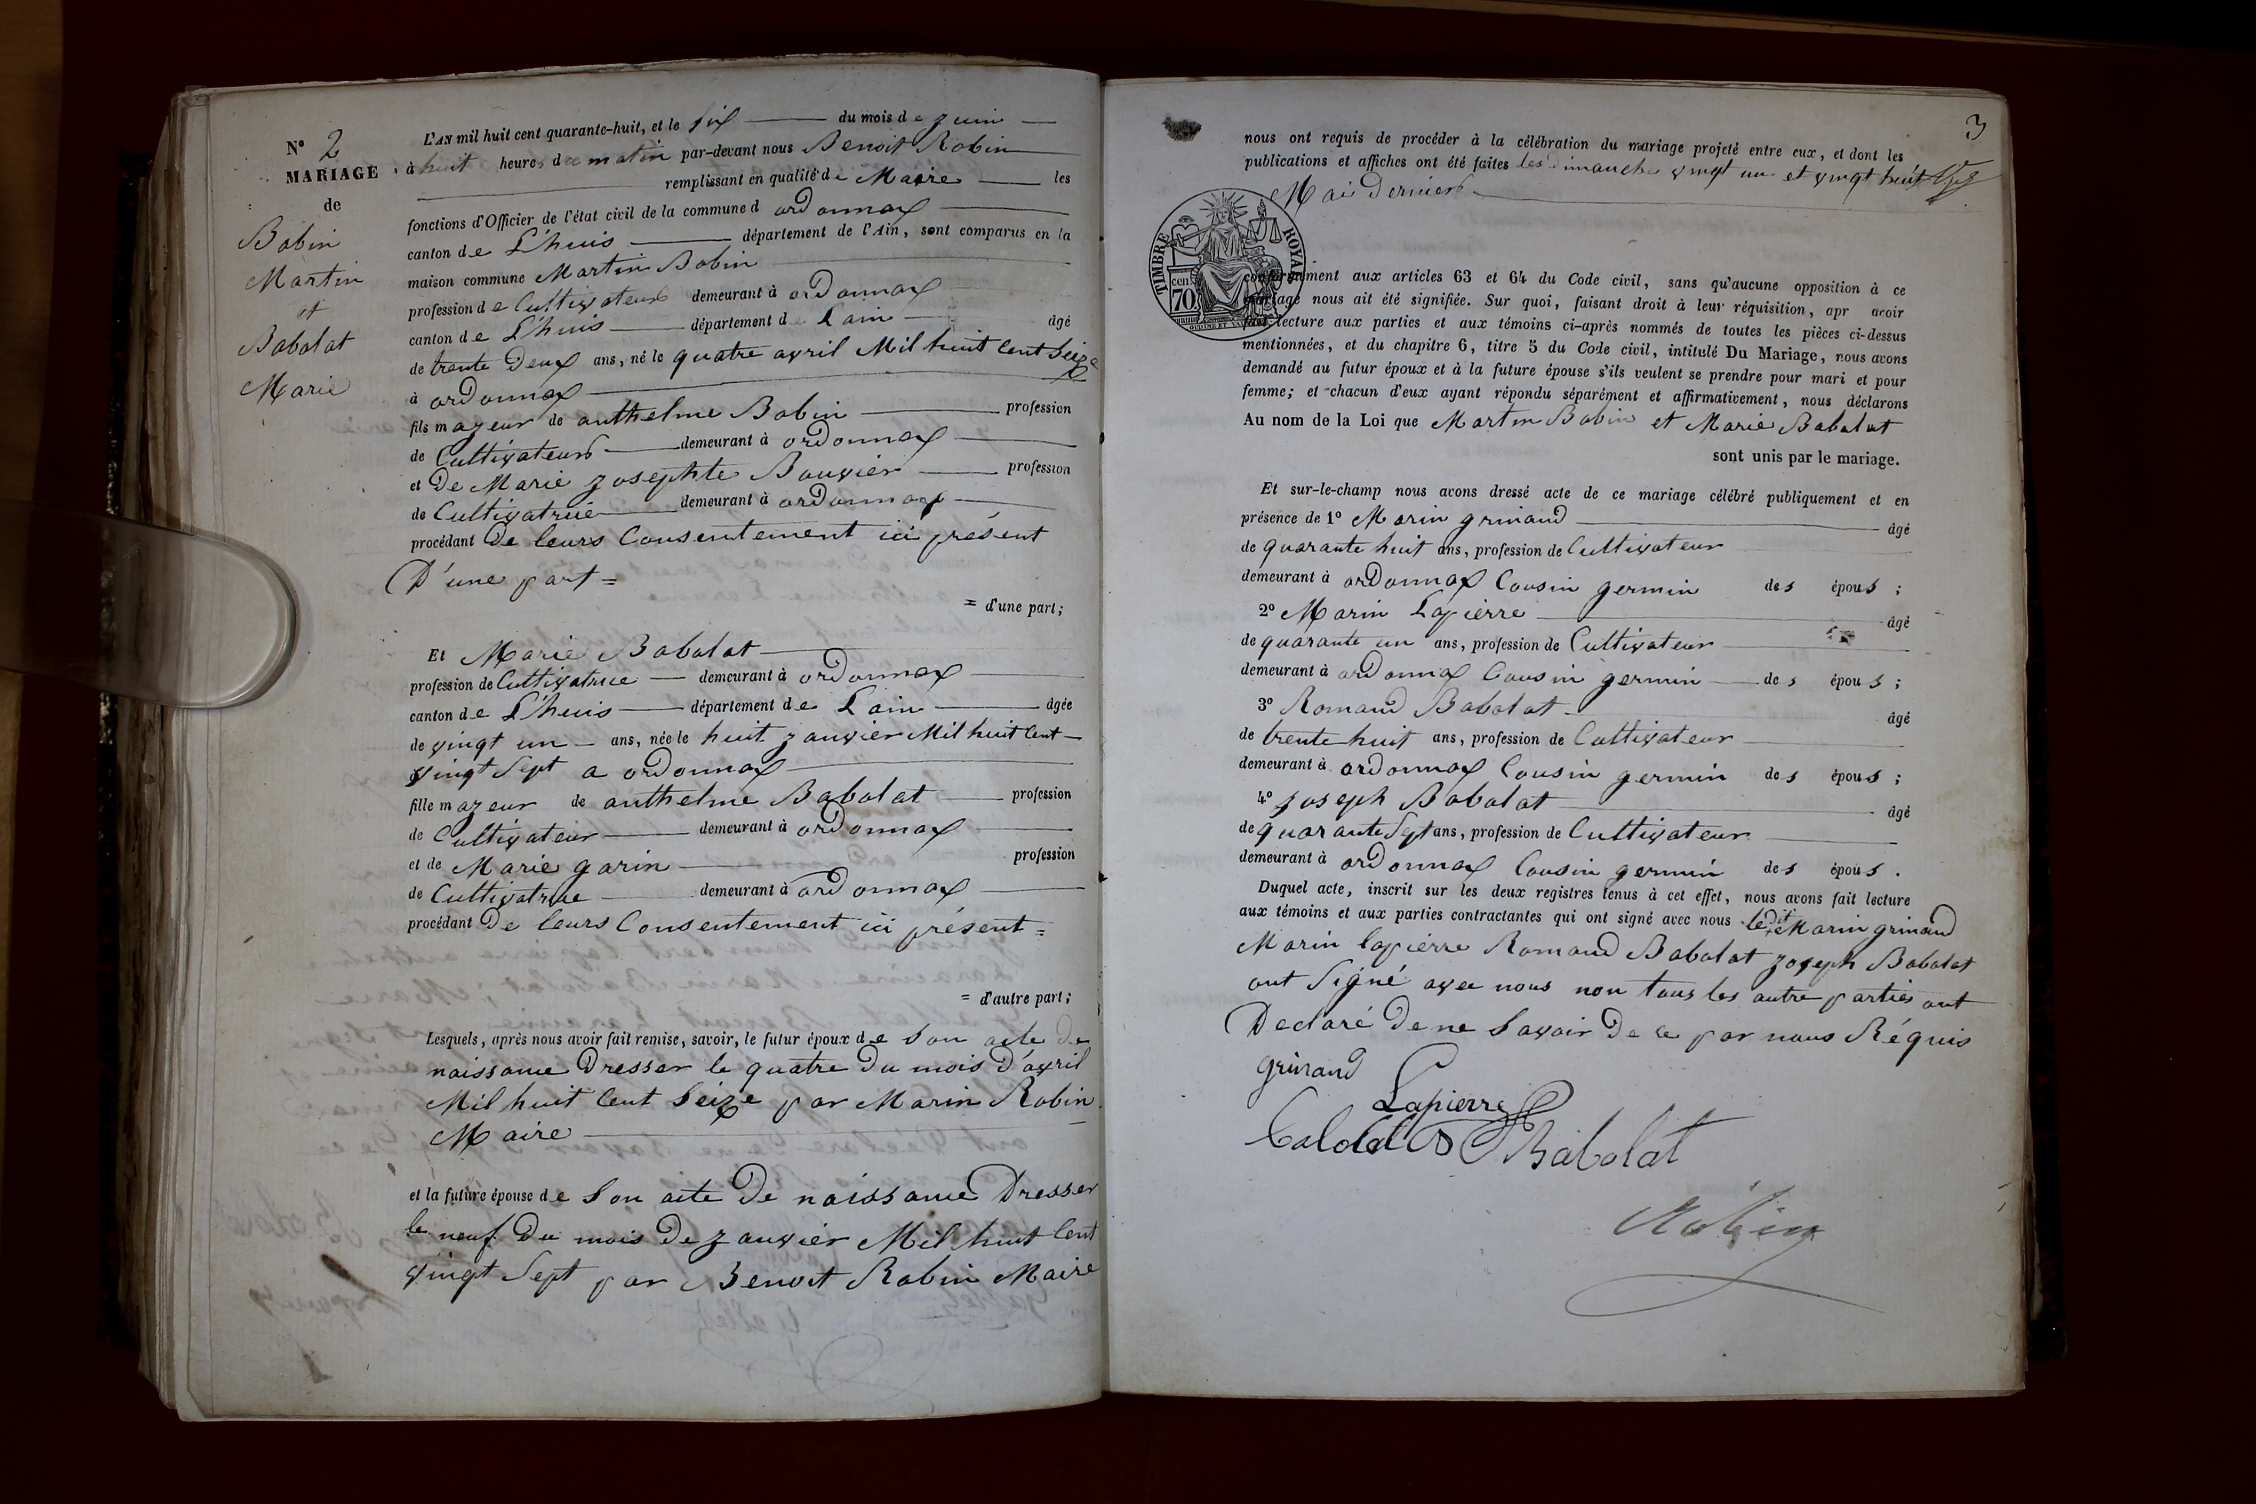 N° 2
MARIAGE
de
Bobin
Martin
et
Babolat
Marie
L'AN mil huit cent quarante-huit, et le six du mois de juin
à huit heures du matin par-devant nous Benoit Robin
remplissant en qualité de Maire les
fonctions d'Officier de l'état civil de la commune d ordonnax
canton de L'huis département de l'Ain, sont comparus en la
maison commune Martin Bobin
profession de Cultivateur demeurant à ordonnax
canton de L'huis département de Lain âgé
de trente Deux ans, né le quatre avril Mil huit Cent Seize
à ordonnax
fils majeur de anthelme Bobin profession
de Cultivateur demeurant à ordonnax
et De Marie josephte Bouvier profession
de Cultivatrice demeurant à ordonnax
procédant De leurs Consentement ici présent
D'une part =
= d'une part;
Et Marie Babolat
profession de Cultivatrice demeurant à ordonnax
canton de L'huis département de Lain âgée
de vingt un ans, née le huit janvier Mil huit Cent
vingt Sept a ordonnax
fille majeur de anthelme Babolat profession
de Cultivateur demeurant à ordonnax
et de Marie garin profession
de Cultivatrice demeurant à ordonnax
procédant De leurs Consentement ici présent =
= d'autre part;
Lesquels, après nous avoir fait remise, savoir, le futur époux de Son acte de
naissance Dresser le quatre Du mois D'avril
Mil huit Cent Seize par Marin Robin
Maire
et la future épouse de Son acte De naissance Dresser
le neuf Du mois De janvier Mil huit Cent
vingt Sept par Benoit Robin Maire
3
nous ont requis de procéder à la célébration du mariage projeté entre eux, et dont les
publications et affiches ont été faites les Dimanche vingt un et vingt huit
Mai Dernier
TIMBRE ROYAL
cen. 70
conformément aux articles 63 et 64 du Code civil, sans qu'aucune opposition à ce
mariage nous ait été signifiée. Sur quoi, faisant droit à leur réquisition, apr avoir
fait lecture aux parties et aux témoins ci-après nommés de toutes les pièces ci-dessus
mentionnées, et du chapitre 6, titre 5 du Code civil, intitulé Du Mariage, nous avons
demandé au futur époux et à la future épouse s'ils veulent se prendre pour mari et pour
femme; et chacun d'eux ayant répondu séparément et affirmativement, nous déclarons
Au nom de la Loi que Martin Bobin et Marie Babolat
sont unis par le mariage.
Et sur-le-champ nous avons dressé acte de ce mariage célébré publiquement et en
présence de 1° Marin grinand âgé
de quarante huit ans, profession de Cultivateur
demeurant à ordonnax Cousin germin des épous;
2° Marin Lapierre âgé
de quarante un ans, profession de Cultivateur
demeurant à ordonnax Cousin germin des épous;
3° Romand Babolat âgé
de trente huit ans, profession de Cultivateur
demeurant à ordonnax Cousin germin des épous;
4° joseph Babolat âgé
de quarante Sept ans, profession de Cultivateur
demeurant à ordonnax Cousin germin des épous.
Duquel acte, inscrit sur les deux registres tenus à cet effet, nous avons fait lecture
aux témoins et aux parties contractantes qui ont signé avec nous ledit Marin grinand
Marin lapierre Romand Babolat joseph Babolat
ont Signé avec nous non tous les autre parties ont
Declaré De ne Savoir De ce par nous Réquis
grinand
Lapierre
Babolat
Robin